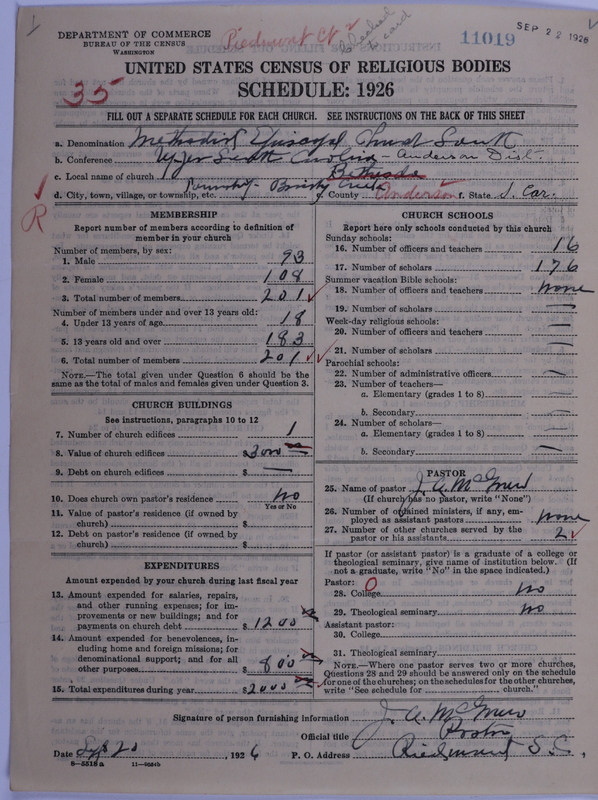 DEPARTMENT OF COMMERCE
BUREAU OF THE CENSUS
WASHINGTON
Piedmont Ct. 2
11019
SEP 22 1926
UNITED STATES CENSUS OF RELIGIOUS BODIES
SCHEDULE: 1926
35
FILL OUT A SEPARATE SCHEDULE FOR EACH CHURCH. SEE INSTRUCTIONS ON THE BACK OF THIS SHEET
a. Denomination Methodist Episcopal Church South
b. Conference Upper South Carolina - Anderson Dist.
c. Local name of church Bethesda
d. City, town, village, or township, etc. Township - Brushy Creek e. County Anderson f. State S. Car.
R
MEMBERSHIP
Report number of members according to definition of member in your church
Number of members, by sex:
1. Male 93
2. Female 108
3. Total number of members 201
Number of members under and over 13 years old:
4. Under 13 years of age 18
5. 13 years old and over 183
6. Total number of members 201
NOTE.—The total given under Question 6 should be the same as the total of males and females given under Question 3.
CHURCH BUILDINGS
See instructions, paragraphs 10 to 12
7. Number of church edifices 1
8. Value of church edifices $ 3000
9. Debt on church edifices $ —
10. Does church own pastor's residence No
Yes or No
11. Value of pastor's residence (if owned by church) $
12. Debt on pastor's residence (if owned by church) $
EXPENDITURES
Amount expended by your church during last fiscal year
13. Amount expended for salaries, repairs, and other running expenses; for improvements or new buildings; and for payments on church debt $ 1200
14. Amount expended for benevolences, including home and foreign missions; for denominational support; and for all other purposes $ 800
15. Total expenditures during year $ 2000
CHURCH SCHOOLS
Report here only schools conducted by this church
Sunday schools:
16. Number of officers and teachers 16
17. Number of scholars 176
Summer vacation Bible schools:
18. Number of officers and teachers none
19. Number of scholars —
Week-day religious schools:
20. Number of officers and teachers —
21. Number of scholars —
Parochial schools:
22. Number of administrative officers —
23. Number of teachers—
a. Elementary (grades 1 to 8) —
b. Secondary —
24. Number of scholars—
a. Elementary (grades 1 to 8) —
b. Secondary —
PASTOR
25. Name of pastor J. A. McGraw
(If church has no pastor, write "None")
26. Number of ordained ministers, if any, employed as assistant pastors none
27. Number of other churches served by the pastor or his assistants 2
If pastor (or assistant pastor) is a graduate of a college or theological seminary, give name of institution below. (If not a graduate, write "No" in the space indicated.)
Pastor: O
28. College no
29. Theological seminary no
Assistant pastor:
30. College
31. Theological seminary
NOTE.—Where one pastor serves two or more churches, Questions 28 and 29 should be answered only on the schedule for one of the churches; on the schedules for the other churches, write "See schedule for church."
Signature of person furnishing information J. A. McGraw
Official title Pastor
Date Sept 20, 1926 P. O. Address Piedmont S.C.
8—5518 a 11—9054b